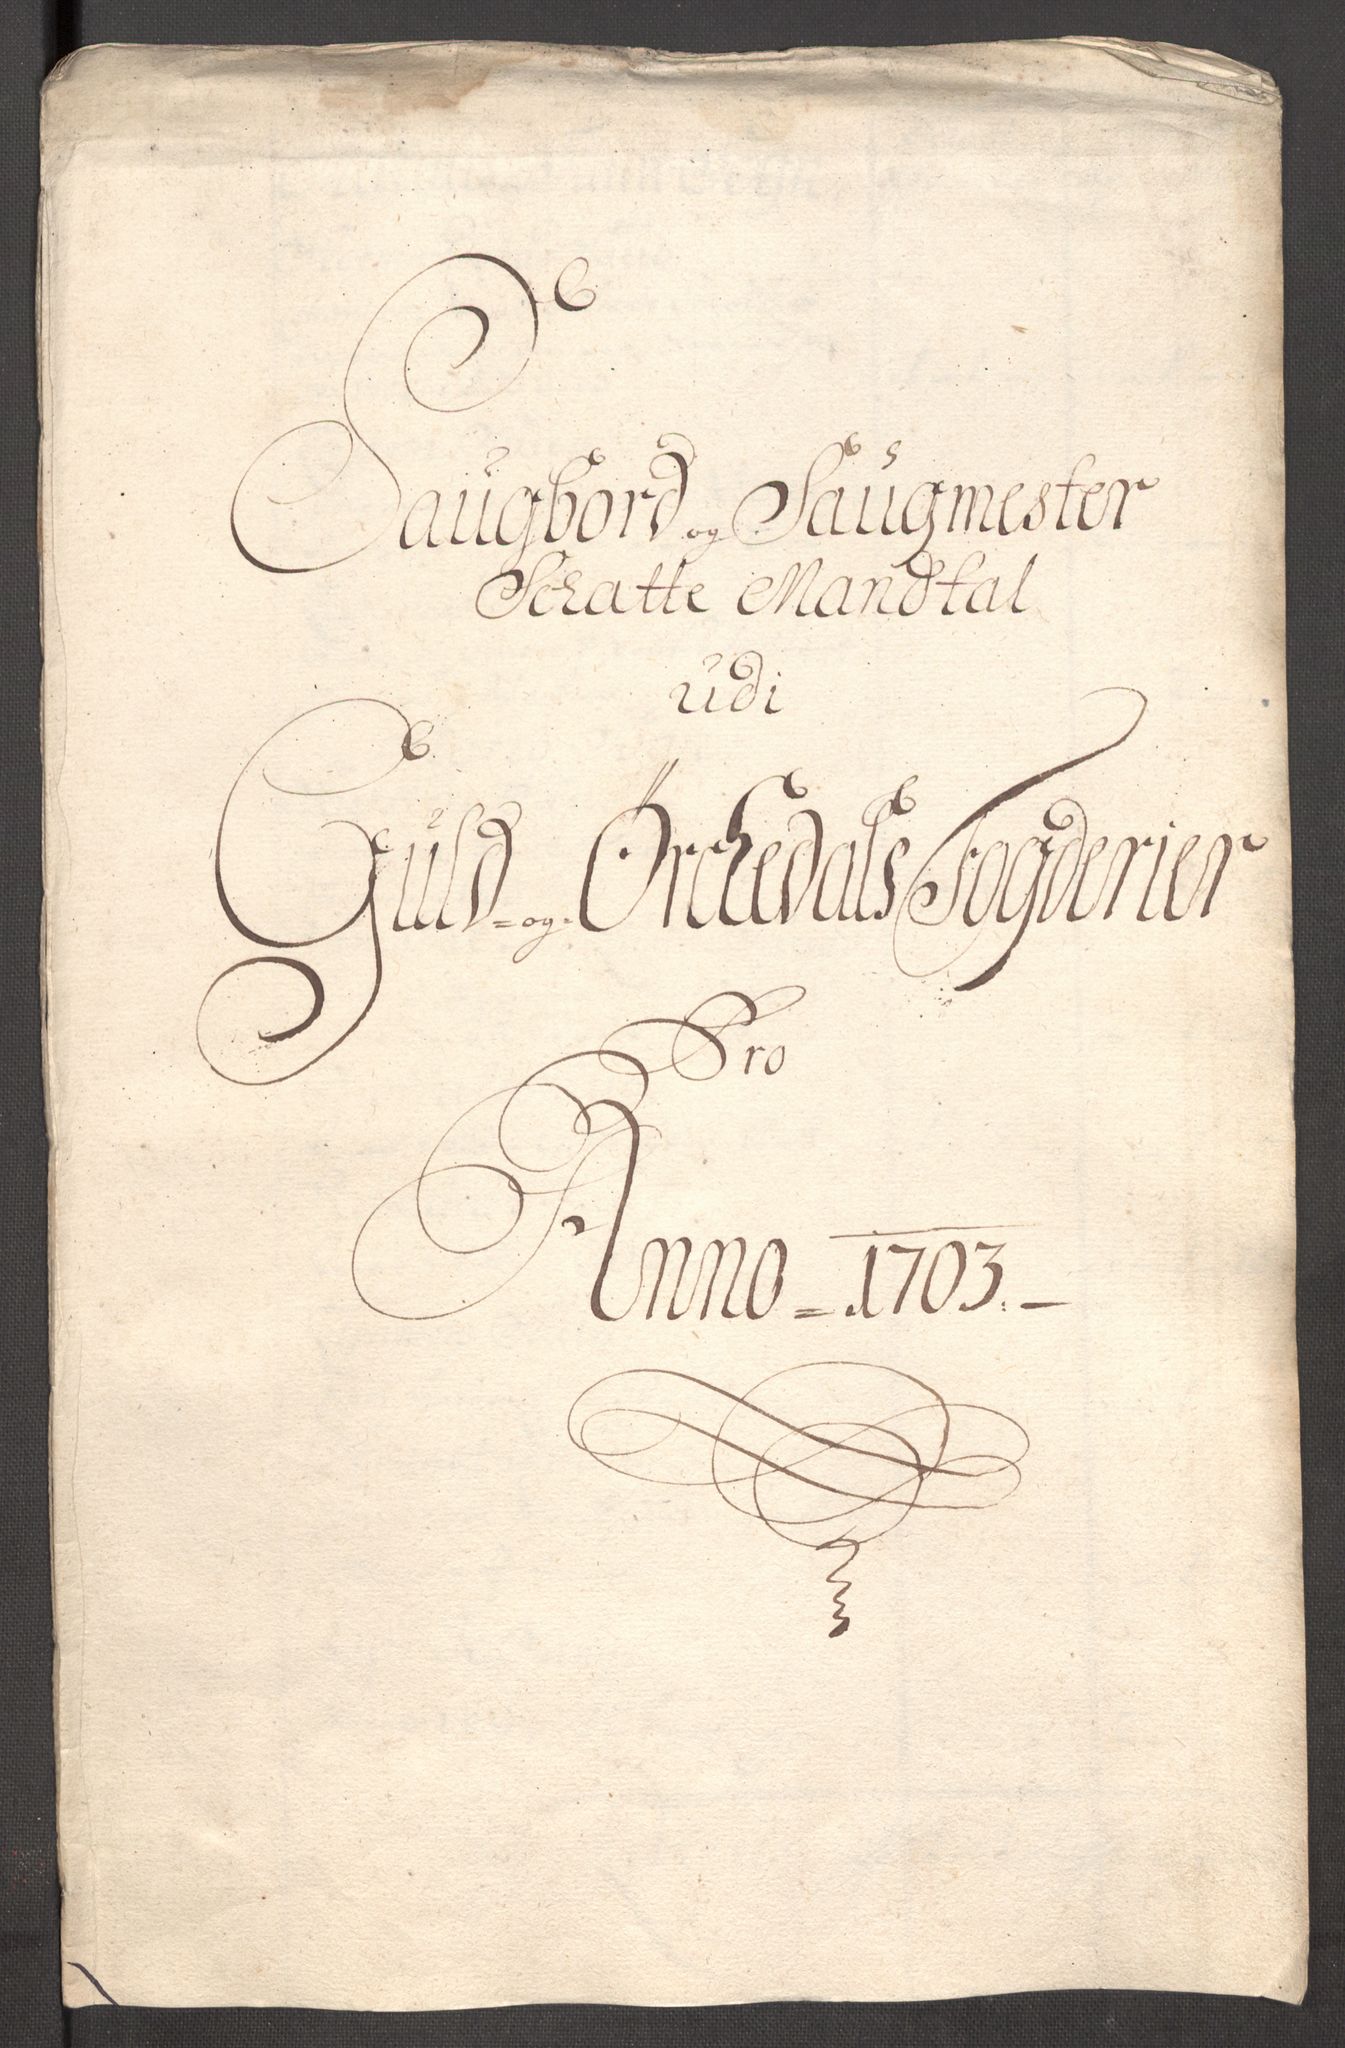 Saugbord og Saugmester
Schatte Mandtal
udi
Guld- og Örchedals Fogderier
Pro
Anno 1703.